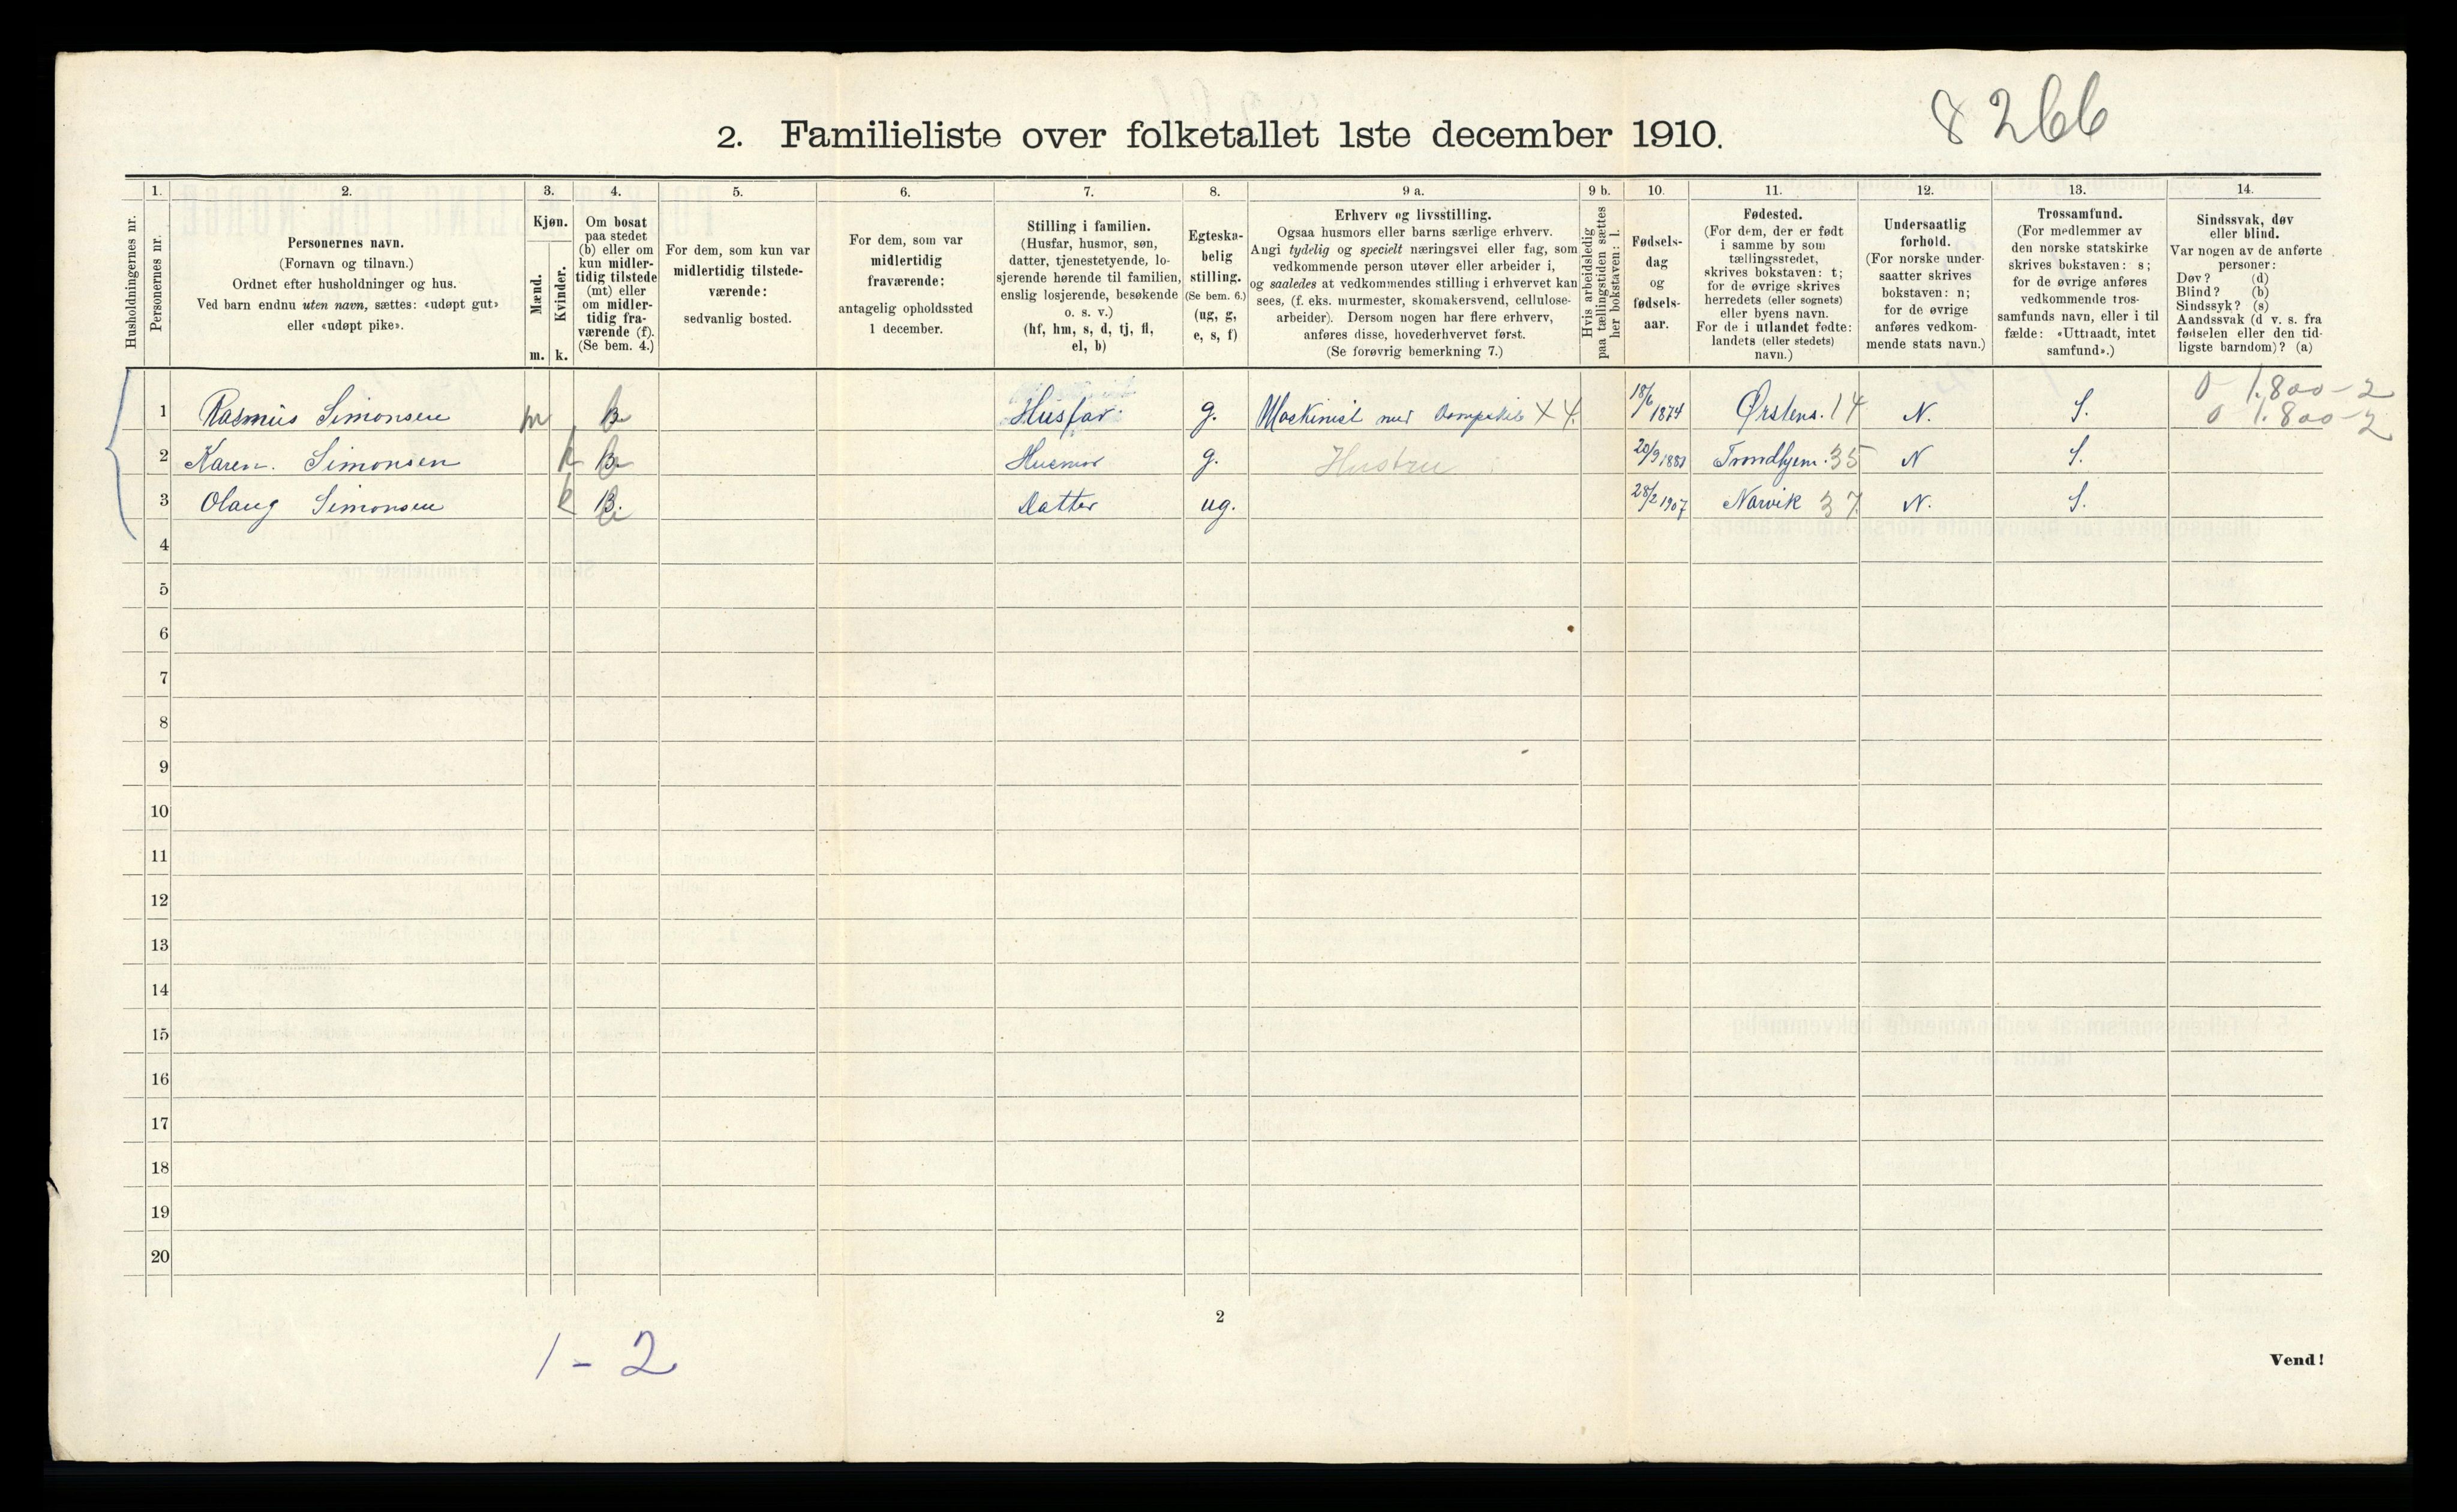 8266
2. Familieliste over folketallet 1ste december 1910.
Husholdningernes nr.
1.
Personernes nr.
2.
Personernes navn.
(Fornavn og tilnavn.)
Ordnet efter husholdninger og hus.
Ved barn endnu uten navn, sættes: «udøpt gut»
eller «udøpt pike».
3.
Kjøn.
Mænd.
m.
Kvinder.
k.
4.
Om bosat
paa stedet
(b) eller om
kun midler-
tidig tilstede
(mt) eller
om midler-
tidig fra-
værende (f).
(Se bem. 4.)
5.
For dem, som kun var
midlertidig tilstede-
værende:
sedvanlig bosted.
6.
For dem, som var
midlertidig
fraværende:
antagelig opholdssted
1 december.
7.
Stilling i familien.
(Husfar, husmor, søn,
datter, tjenestetyende, lo-
sjerende hørende til familien,
enslig losjerende, besøkende
o. s. v.)
(hf, hm, s, d, tj, fl,
el, b)
8.
Egteska-
belig
stilling.
(Se bem. 6.)
(ug, g,
e, s, f)
9 a.
Erhverv og livsstilling.
Ogsaa husmors eller barns særlige erhverv.
Angi tydelig og specielt næringsvei eller fag, som
vedkommende person utøver eller arbeider i,
og saaledes at vedkommendes stilling i erhvervet kan
sees, (f. eks. murmester, skomakersvend, cellulose-
arbeider). Dersom nogen har flere erhverv,
anføres disse, hovederhvervet først.
(Se forøvrig bemerkning 7.)
9 b.
Hvis arbeidsledig
paa tællingstiden sættes
her bokstaven: l.
10.
Fødsels-
dag
og
fødsels-
aar.
11.
Fødested.
(For dem, der er født
i samme by som
tællingsstedet,
skrives bokstaven: t;
for de øvrige skrives
herredets (eller sognets)
eller byens navn.
For de i utlandet fødte:
landets (eller stedets)
navn.)
12.
Undersaatlig
forhold.
(For norske under-
saatter skrives
bokstaven: n;
for de øvrige
anføres vedkom-
mende stats navn.)
13.
Trossamfund.
(For medlemmer av
den norske statskirke
skrives bokstaven: s;
for de øvrige anføres
vedkommende tros-
samfunds navn, eller i til
fælde: «Uttraadt, intet
samfund».)
14.
Sindssvak, døv
eller blind.
Var nogen av de anførte
personer:
Døv? (d)
Blind? (b)
Sindssyk? (s)
Aandssvak (d v. s. fra
fødselen eller den tid-
ligste barndom)? (a)
0 1.800-2
0 1.800-2
1 Rasmus Simonsen m B. Husfar g. Maskinist X4. 18/6 1874 Ørstens. 14 N. S.
2 Karen. Simonsen k B. Husmor g. Hustru 20/9 1881 Trondhjem. 35 N S.
3 Olaug Simonsen k B. Datter ug. 28/2 1907 Narvik 37 N. S.
4
5
6
7
8
9
10
11
12
13
14
15
16
17
18
19
20
2
1 - 2
Vend!